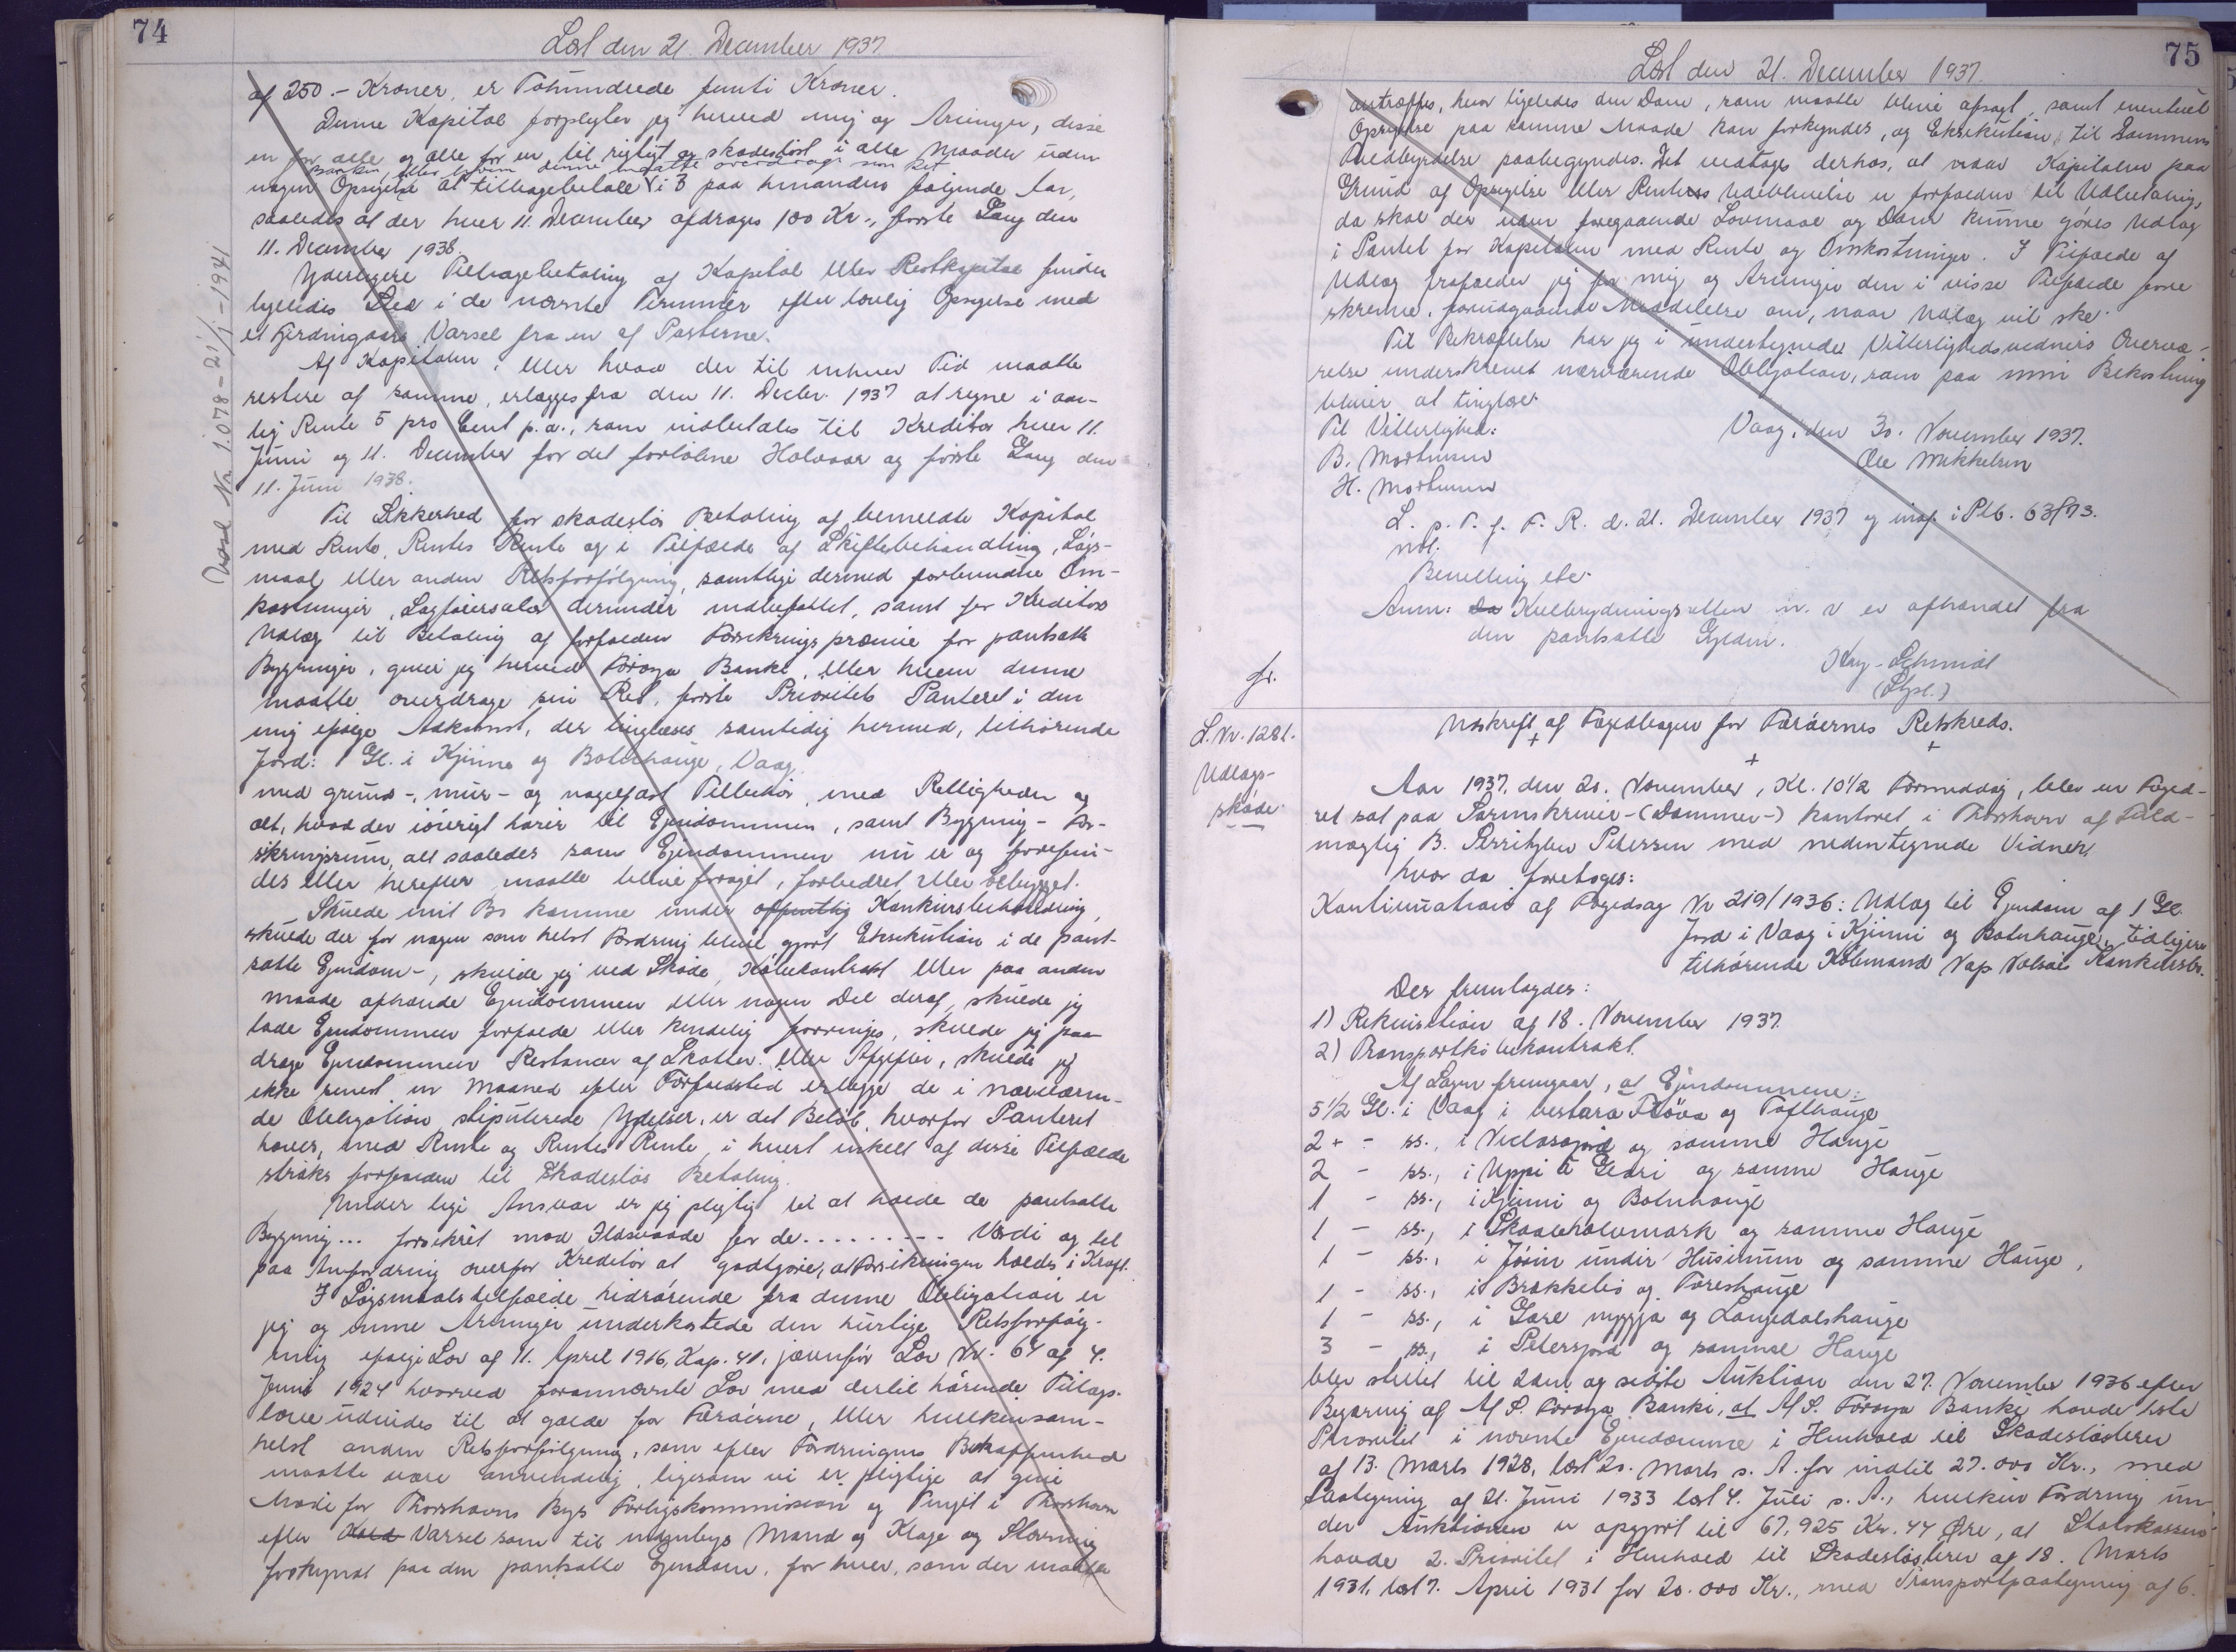 74
Læst den 21. December 1937.
af 250.- Kroner, er Tohundrede femti Kroner.
Denne Kapital forpligter jeg herved mig og Arvinger, disse
en for alle og alle for en til rigtigt og skadesløst i alle Maader uden
Banken, eller hvem denne maatte overdrage sin Ret
nogen Opsigelse at tilbagebetale i 3 paa hinanden følgende Aar,
saaledes at der hver 11. December afdrages 100 Kr., første Gang den
11. December 1938.
Yderligere Tilbagebetaling af Kapital eller Restkapital finder
ligeledes Sted i de nævnte Terminer efter lovlig Opsigelse med
et Fjerdingaars Varsel fra en af Parterne.
Af Kapitalen, eller hvad der til enhver Tid maatte
restere af samme, erlægges fra den 11. Decbr. 1937 at regne i aar-
lig Rente 5 pro Cent p.a., som indbetales til Kreditor hver 11.
Juni og 11. December for det forløbne Halvaar og første Gang den
11. Juni 1938.
Til Sikkerhed for skadesløs Betaling af bemeldte Kapital
med Rente, Rentes Rente og i Tilfælde af Skiftebehandling, Søgs-
maal eller anden Retsforfølgning samtlige dermed forbundne Om-
kostninger, Sagførersalær derunder indbefattet, samt for Kreditors
Udlæg til Betaling af forfalden Forsikringspræmie for pantsatte
Bygninger, giver jeg herved Føroya Banki, eller hvem denne
maatte overdrage sin Ret, første Prioritets Panteret i den
mig ifølge Adkomst, der tinglæses samtidig hermed, tilhørende
Jord: 1 Gl. i Kjinne og Botnhauge, Vaag.
med grund-, mur- og nagelfast Tilbehør, med Rettigheder og
alt, hvad der iøvrigt hører til Ejendommen, samt Bygning- For-
sikringssum, alt saaledes som Ejendommen nu er og forefin-
des eller herefter maatte blive forøget, forbedret eller bebygget.
Skulde mit Bo komme under offentlig Konkursbehandling,
skulde der for nogen som helst Fordring blive gjort Eksekution i de pant-
satte Ejendom-, skulde jeg ved Skøde, Købekontrakt eller paa anden
Maade afhænde Ejendommen eller nogen Del deraf, skulde jeg
lade Ejendommen forfalde eller kendelig forringes, skulde jeg paa
drage Ejendommen Restancer af Skatter eller Afgifter, skulde jeg
ikke senest en Maaned efter Forfaldstid erlægge de i nærværen-
de Obligation stipulerede Ydelser, er det Beløb, hvorfor Panteret
haves, med Rente og Rentes Rente, i hvert enkelt af disse Tilfælde
straks forfalden til skadesløs Betaling.
Under lige Ansvar er jeg pligtig til at holde de pantsatte
Bygning... forsikret mod Ildsvaade for de ......... Værdi og til
paa Anfordring overfor Kreditor at godtgøre, at Forsikringen holdes i Kraft.
I Søgsmaalstilfælde hidrørende fra denne Obligation er
jeg og mine Arvinger underkastede den hurtige Retsforfølg-
ning ifølge Lov af 11. April 1916, Kap. 41, jævnfør Lov Nr. 64 af 4.
Juni 1924 hvorved forannævnte Lov med dertil hørende Tillægs-
love udvides til at gælde for Færøerne, eller hvilkensom-
helst anden Retsforfølgning, som efter Fordringens Beskaffenhed
maatte være anvendelig, ligesom vi er pligtige at give
Møde for Thorshavns Bys Forligskommission og Tinget i Thorshavn
efter Varsel som til indenbys Mand og Klage og Stævning
forkyndt paa den pantsatte Ejendom, for hver, som der maatte
Vosl Nr. 1.078 - 21/1 - 1941
75
Læst den 21. December 1937.
antræffes, hvor ligeledes den Dom, som maatte blive afsagt, samt eventuel
Opsigelse paa samme Maade kan forkyndes, og Eksekution til Dommens
Fuldbyrdelse paabegyndes. Det vedtages derhos, at naar Kapitalen paa
Grund af Opsigelse eller Rentens Udeblivelse er forfalden til Udbetaling,
da skal der uden foregaaende Lovmaal og Dom kunne gøres Udlæg
i Pantet for Kapitalen med Rente og Omkostninger. I Tilfælde af
Udlæg frafalder jeg for mig og Arvinger den i visse Tilfælde fore
skrevne, forudgaaende Meddelelse om, naar Udlæg vil ske.
Til Bekræftelse har jeg i undertegnede Vitterlighedsvidners Overvæ-
relse underskrevet nærværende Obligation, som paa min Bekostning
bliver at tinglæse.
Vaag, den 30. November 1937.
Ole Mikkelsen
Til Vitterlighed:
B. Mortensen
H. Mortensen
L. p. T. f. F. R. d. 21. December 1937 og indf. i Ptb. 63/73.
ndl.
Beretning etc.
Anm: Kulbrydningsretten m. v er afhændet fra
den pantsatte Ejedom.
Kay-Schmidt
(Stpl.)
fr.
L. Nr. 1281.
Udlægs-
skøde
Udskrift af Fogedbogen for Færøernes Retskreds.
+ + +
Aar 1937, den 20. November, Kl. 10 1/2 Formiddag, blev en Foged-
ret sat paa Sorenskriver-(Dommer-) kontoret i Thorshavn af Fuld-
mægtig B. Serritzlew Petersen med nedentegnede Vidner,
hvor da foretoges:
Kontinuation af Fogedsag Nr 219/1936: Udlæg til Ejendom af 1 Gl.
Jord i Vaag i Kjinni og Botnhauge, tidligere
tilhørende Købmand Konkursbo.
Der fremlagdes:
1) Rekvisition af 18. November 1937.
2) Transportkøbekontrakt.
Af Sagen fremgaar, at Ejendommene:
5 1/2 Gl. i Vaag i vestara og Tofthauge
2 + - ss., i og samme Hauge
2 - ss., i Uppi á Gerdi og samme Hauge
1 - ss., i Kjinni og Botnhauge
1 - ss., i og samme Hauge
1 - ss., i Jørin undir Húsinum og samme Hauge,
1 - ss., i Brekkelið og Foreshauge
1 - ss., i Gøre nyggja og Langedalshauge
3 - ss., i Petersjord og samme Hauge
blev stillet til 2den og sidste Auktion den 27. November 1936 efter
Begæring af A/S. Føroya Banki, at A/S. Føroya Banki havde 1ste
Prioritet i nævnte Ejendomme i Henhold til Skadesløsbrev
af 13. Marts 1928, læst 20. Marts s. A. for indtil 27.000 Kr., med
Paategning af 21. Juni 1933 læst 4. Juli s. A., hvilken Fordring un-
der Auktionen er opgjort til 67,925 Kr. 44 Øre, at Statskassen
havde 2. Prioritet i Henhold til Skadesløsbrev af 18. Marts
1931, læst 7. April 1931 for 20.000 Kr., med Transportpaategning af 6.